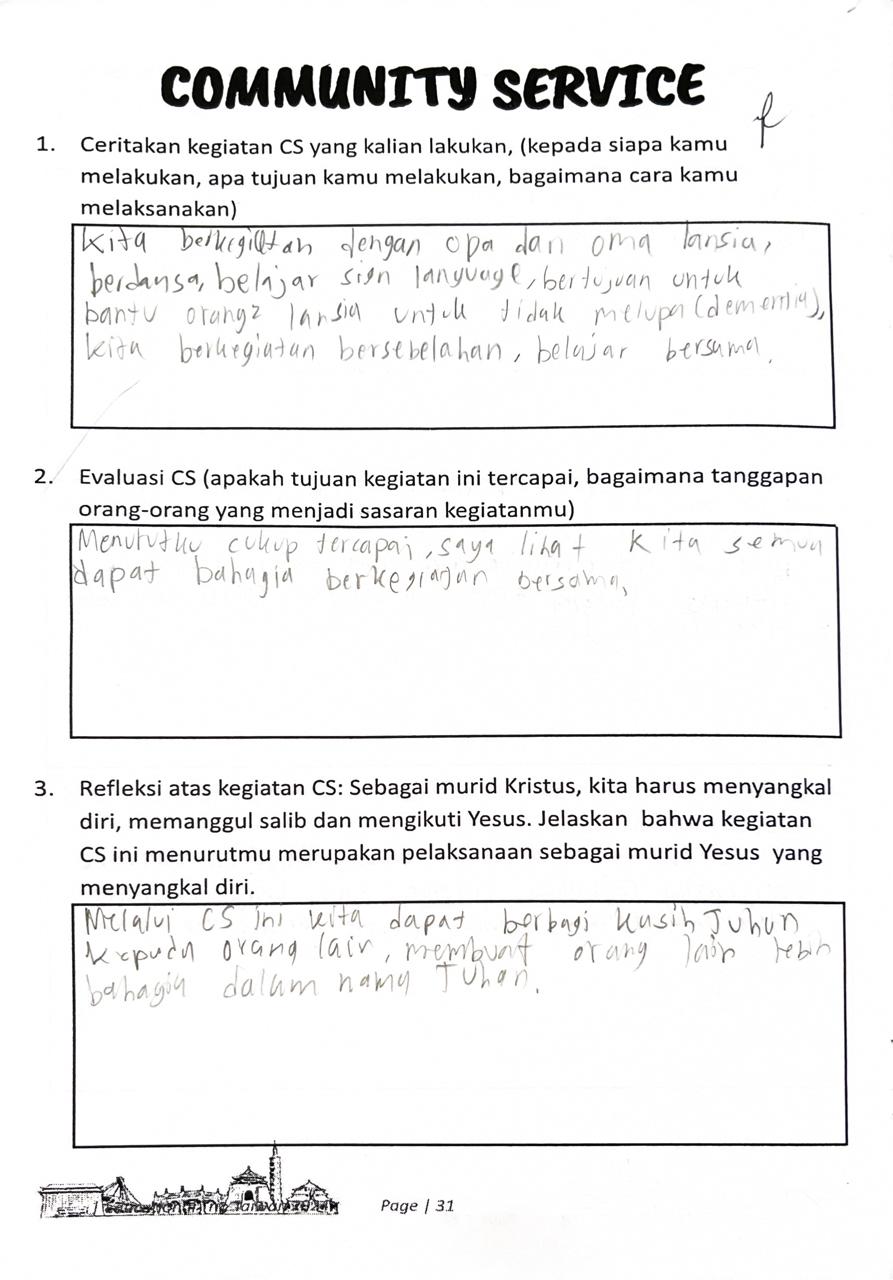 COMMUNITY SERVICE
1. Ceritakan kegiatan CS yang kalian lakukan, (kepada siapa kamu
melakukan, apa tujuan kamu melakukan, bagaimana cara kamu
melaksanakan)
Kita berkegiatan dengan opa dan oma lansia,
berdansa, belajar sign language, bertujuan untuk
bantu orang2 lansia untuk tidak melupa (dementia),
kita berkegiatan bersebelahan, belajar bersama.
2. Evaluasi CS (apakah tujuan kegiatan ini tercapai, bagaimana tanggapan
orang-orang yang menjadi sasaran kegiatanmu)
Menurutku cukup tercapai, saya lihat kita semua
dapat bahagia berkegiatan bersama,
3. Refleksi atas kegiatan CS: Sebagai murid Kristus, kita harus menyangkal
diri, memanggul salib dan mengikuti Yesus. Jelaskan bahwa kegiatan
CS ini menurutmu merupakan pelaksanaan sebagai murid Yesus yang
menyangkal diri.
Melalui CS ini kita dapat berbagi kasih Tuhan
kepada orang lain, membuat orang lain lebih
bahagia dalam nama Tuhan.
Page | 31